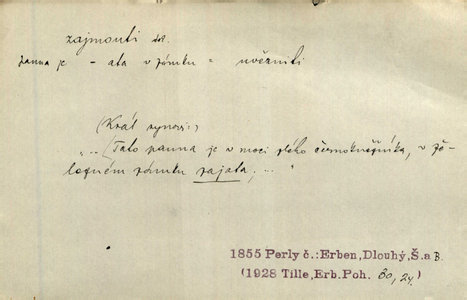 zajmouti dok.
panna je - ata v zámku = uvězniti
(Král synovi:)
"... (Tato panna je v moci zlého černokněžníka, v že-
lezném zámku zajata, ..."
1855 Perly č.:Erben,Dlouhý,Š.a B.
(1928 Tille,Erb.Poh. 80,24)